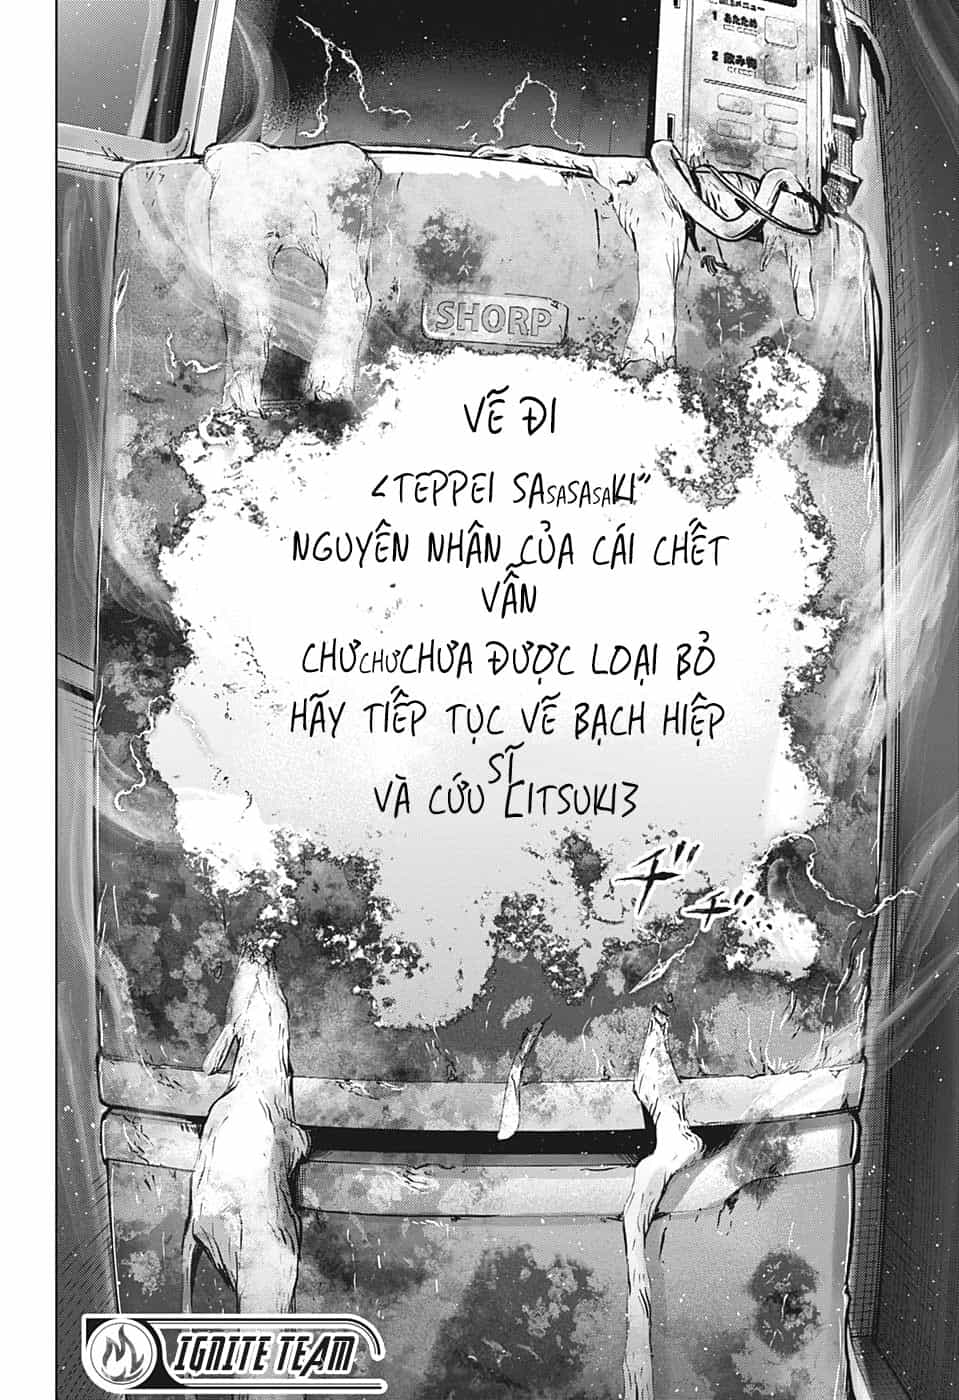 上メニュー
1 あたため
2 飲み物
SHORP
VẼ ĐI
<TEPPEI SASASASAKI"
NGUYÊN NHÂN CỦA CÁI CHẾT
VẪN
CHƯCHƯCHƯA ĐƯỢC LOẠI BỎ
HÃY TIẾP TỤC VẼ BẠCH HIỆP
SĨ
VÀ CỨU [ITSUKI3
ヂ"
ヂ"...
IGNITE TEAM